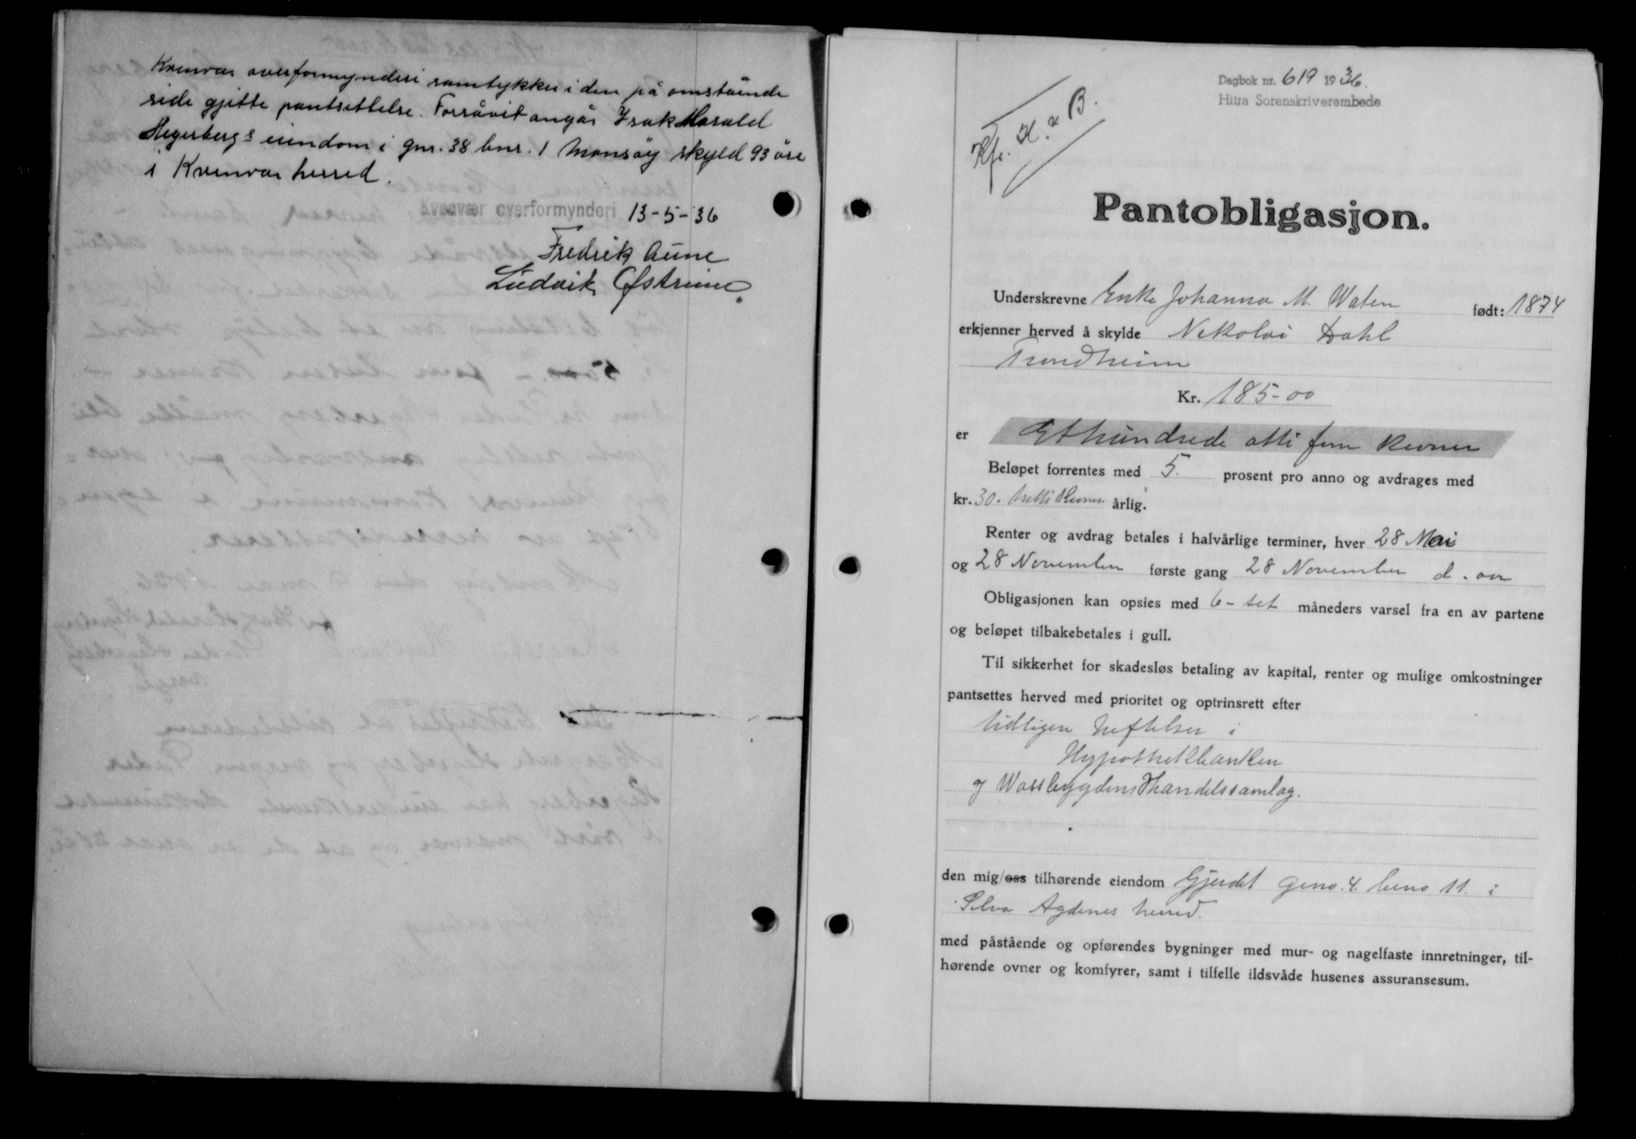 Kvenvær overformynderi samtykker i den på omstående
side gjitte pantsettelse. Forsåvit angår Isak Harald
Hegerbergs eiendom i gnr. 38 bnr. 1 Mansøy skyld 93 øre
i Kvenvær herred.
Kvenvær overformynderi 13-5-36
Fredrik Aune
Ludvik Østrem
Dagbok nr. 619 1936.
Hitra Sorenskriverembede
Kfr. H. & B.
Pantobligasjon.
Underskrevne Enke Johanna M. Waten født: 1874
erkjenner herved å skylde Nikolai Dahl
Trondheim
Kr. 185-00
er Ethundrede otti fem kroner
Beløpet forrentes med 5. prosent pro anno og avdrages med
kr. 30.- tretti kroner årlig.
Renter og avdrag betales i halvårlige terminer, hver 28 Mai
og 28 November første gang 28 November d. aa
Obligasjonen kan opsies med 6- måneders varsel fra en av partene
og beløpet tilbakebetales i gull.
Til sikkerhet for skadesløs betaling av kapital, renter og mulige omkostninger
pantsettes herved med prioritet og optrinsrett efter
tidligere heftelser i
Hypothekbanken
og Handelssamlag.
den mig/oss tilhørende eiendom Gjerdet gno. 4 bno 11. i
Selva Agdenes herred.
med påstående og opførendes bygninger med mur- og nagelfaste innretninger, til-
hørende ovner og komfyrer, samt i tilfelle ildsvåde husenes assuransesum.